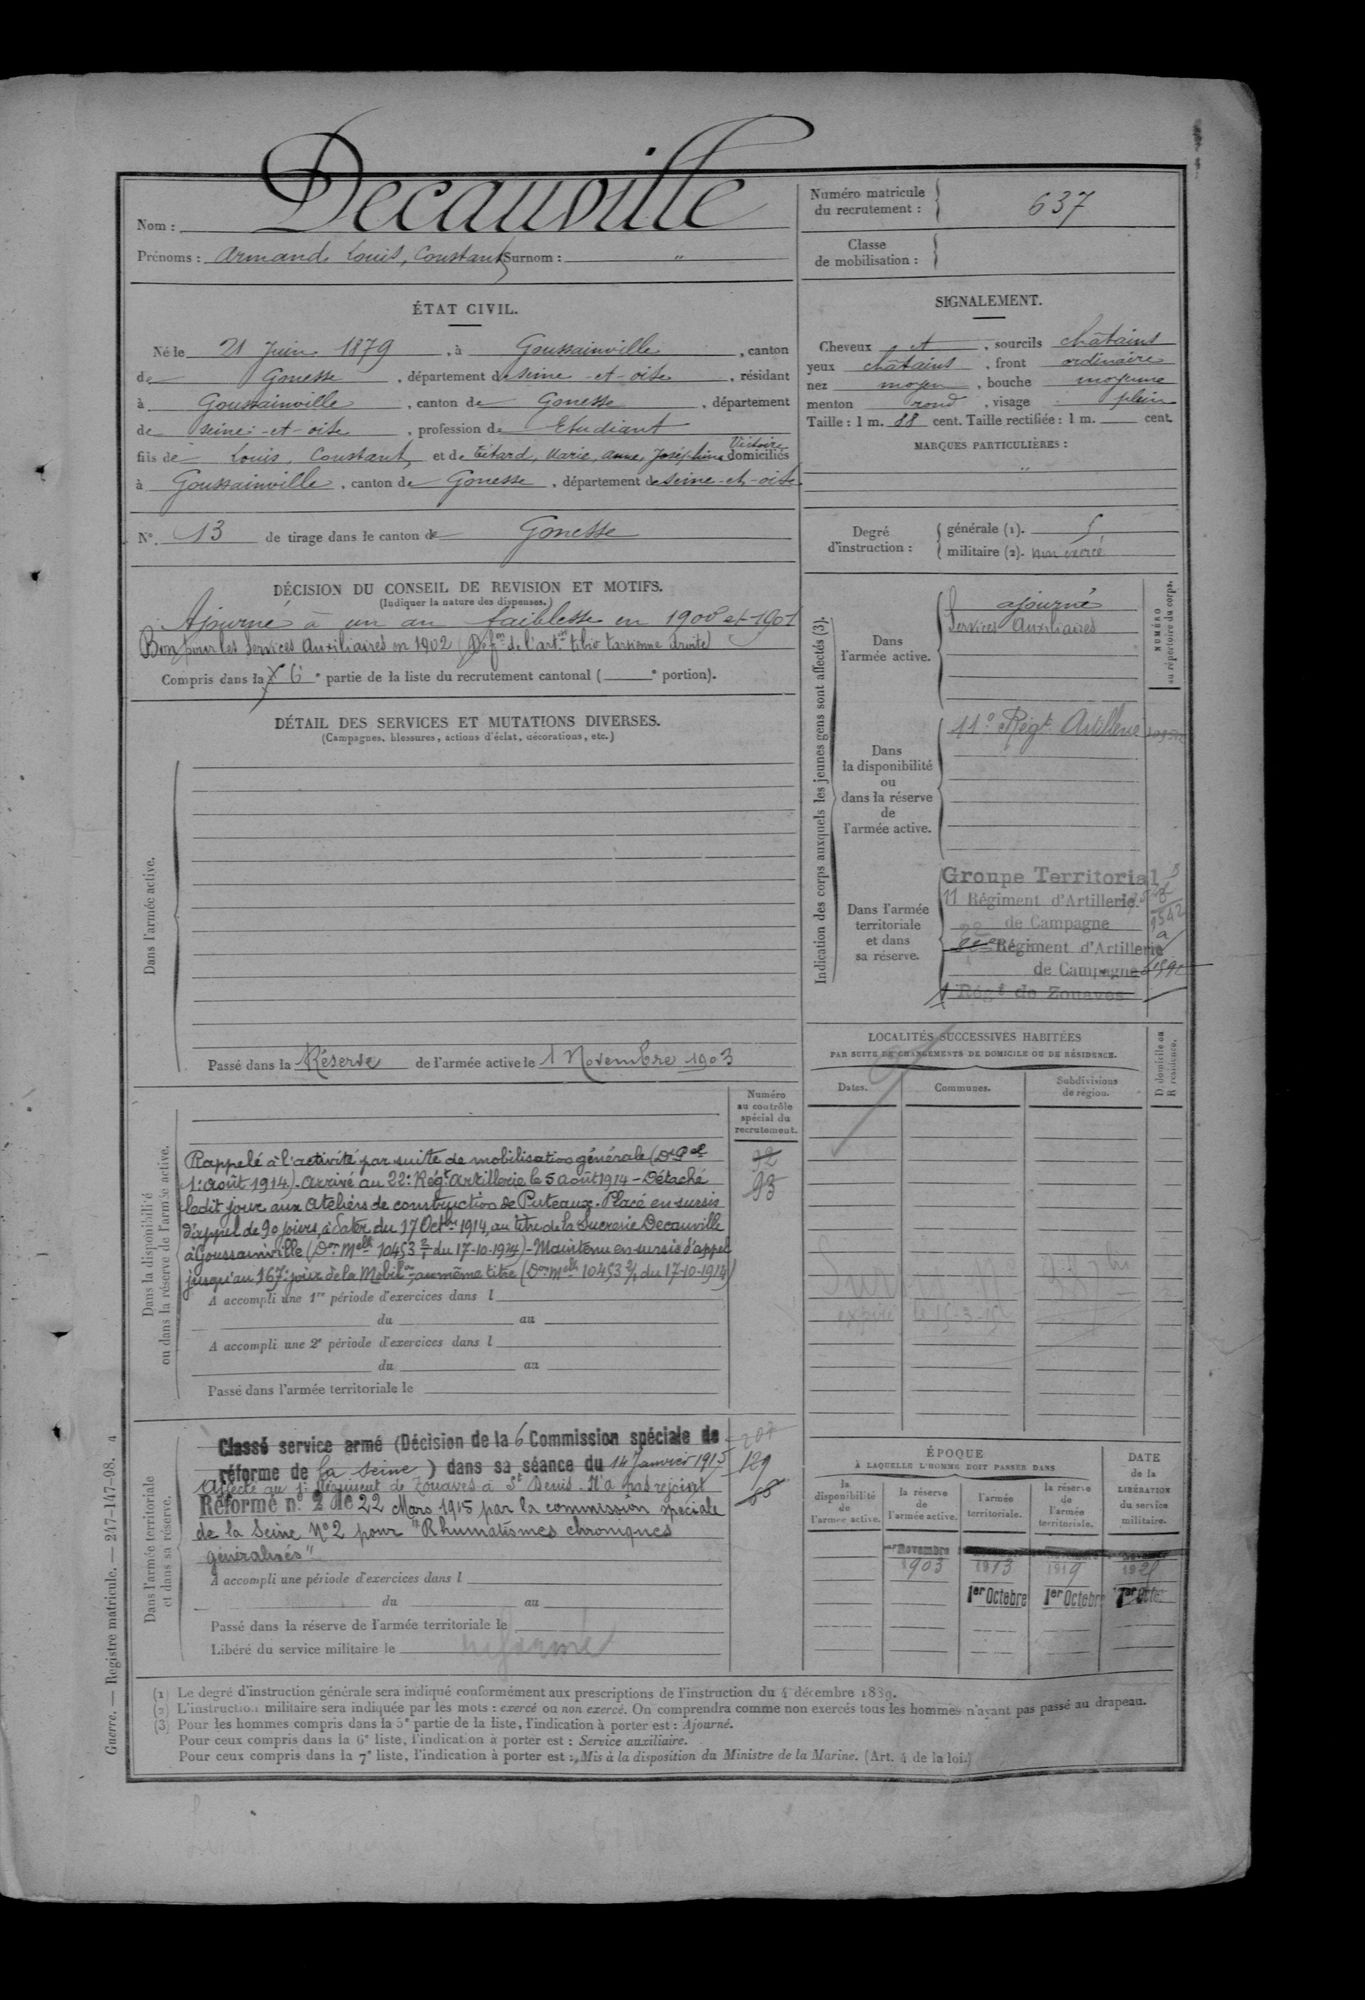 Nom : Decauville
Prénoms : Armand, Louis, Constant Surnom : "
ÉTAT CIVIL.
Né le 21 Juin 1879, à Goussainville, canton
de Gonesse, département de Seine-et-Oise, résidant
à Goussainville, canton de Gonesse, département
de Seine-et-Oise, profession de Etudiant
fils de Louis, Constant, et de Tétard, Marie, Anne, Joséphine Victoire domiciliés
à Goussainville, canton de Gonesse, département de Seine-et-Oise
N° 13 de tirage dans le canton de Gonesse
DÉCISION DU CONSEIL DE REVISION ET MOTIFS.
(Indiquer la nature des dispenses.)
Ajourné à un an faiblesse en 1900 et 1901
Bon pour les Services Auxiliaires en 1902 (Def.on de l'art.on tibio tarsienne droite)
Compris dans la 6e partie de la liste du recrutement cantonal ( e portion).
DÉTAIL DES SERVICES ET MUTATIONS DIVERSES.
(Campagnes, blessures, actions d'éclat, décorations, etc.)
Dans l'armée active.
Passé dans la Réserve de l'armée active le 1 Novembre 1903
Dans la disponibilité
ou dans la réserve de l'armée active.
Numéro
au contrôle
spécial du
recrutement.
12
93
Rappelé à l'activité par suite de mobilisation générale (Dt Pel
1er Août 1914). Arrivé au 22e Régt Artillerie le 5 août 1914 - Détaché
ledit jour aux Ateliers de construction de Puteaux. Placé en sursis
d'appel de 90 jours, à dater du 17 Octbre 1914, au titre de la Sucrerie Decauville
à Goussainville (Don Melle 10453 2/1 du 17-10-1914) - Maintenu en sursis d'appel
jusqu'au 167e jour de la Mobilon, au même titre (Don Melle 10453 2/1 du 17-10-1914)
A accompli une 1re période d'exercices dans l
du au
A accompli une 2e période d'exercices dans l
du au
Passé dans l'armée territoriale le
Dans l'armée territoriale
et dans sa réserve.
Classé service armé (Décision de la 6 Commission spéciale de
réforme de la Seine) dans sa séance du 14 Janvier 1915
Affecté au 1er Régiment de Zouaves à St Denis. N'a pas rejoint
129
Réformé n° 2 le 22 Mars 1915 par la commission spéciale
de la Seine N° 2 pour "Rhumatismes chroniques
généralisés"
A accompli une période d'exercices dans l
du au
Passé dans la réserve de l'armée territoriale le
Libéré du service militaire le réformé
Numéro matricule
du recrutement : 637
Classe
de mobilisation :
SIGNALEMENT.
Cheveux et, sourcils châtains
yeux châtains, front ordinaire
nez moyen, bouche moyenne
menton rond, visage plein
Taille : 1 m. 88 cent. Taille rectifiée : 1 m. cent.
MARQUES PARTICULIÈRES :
"
Degré
d'instruction :
générale (1).
militaire (2). non exercé
Indication des corps auxquels les jeunes gens sont affectés (3).
NUMÉRO
au répertoire du corps.
Dans
l'armée active.
ajourné
Services Auxiliaires
Dans
la disponibilité
ou
dans la réserve
de
l'armée active.
11e Régt Artillerie
Dans l'armée
territoriale
et dans
sa réserve.
Groupe Territorial
11 Régiment d'Artillerie
de Campagne
22 Régiment d'Artillerie
de Campagne
1 Régt de Zouaves
LOCALITÉS SUCCESSIVES HABITÉES
PAR SUITE DE CHANGEMENTS DE DOMICILE OU DE RÉSIDENCE.
Dates. Communes. Subdivisions
de région. D domicile ou
R résidence.
expiré le 15-3-15
ÉPOQUE
À LAQUELLE L'HOMME DOIT PASSER DANS
DATE
de la
LIBÉRATION
du service
militaire.
la
disponibilité
de
l'armée active.
la réserve
de
l'armée active.
l'armée
territoriale.
la réserve
de
l'armée
territoriale.
Novembre
1903 1913 1919
1er Octobre 1er Octobre 1er Octo
(1) Le degré d'instruction générale sera indiqué conformément aux prescriptions de l'instruction du 4 décembre 1889.
(2) L'instruction militaire sera indiquée par les mots : exercé ou non exercé. On comprendra comme non exercés tous les hommes n'ayant pas passé au drapeau.
(3) Pour les hommes compris dans la 5e partie de la liste, l'indication à porter est : Ajourné.
Pour ceux compris dans la 6e liste, l'indication à porter est : Service auxiliaire.
Pour ceux compris dans la 7e liste, l'indication à porter est : Mis à la disposition du Ministre de la Marine. (Art. 4 de la loi.)
Guerre. — Registre matricule. — 247-147-98. 4